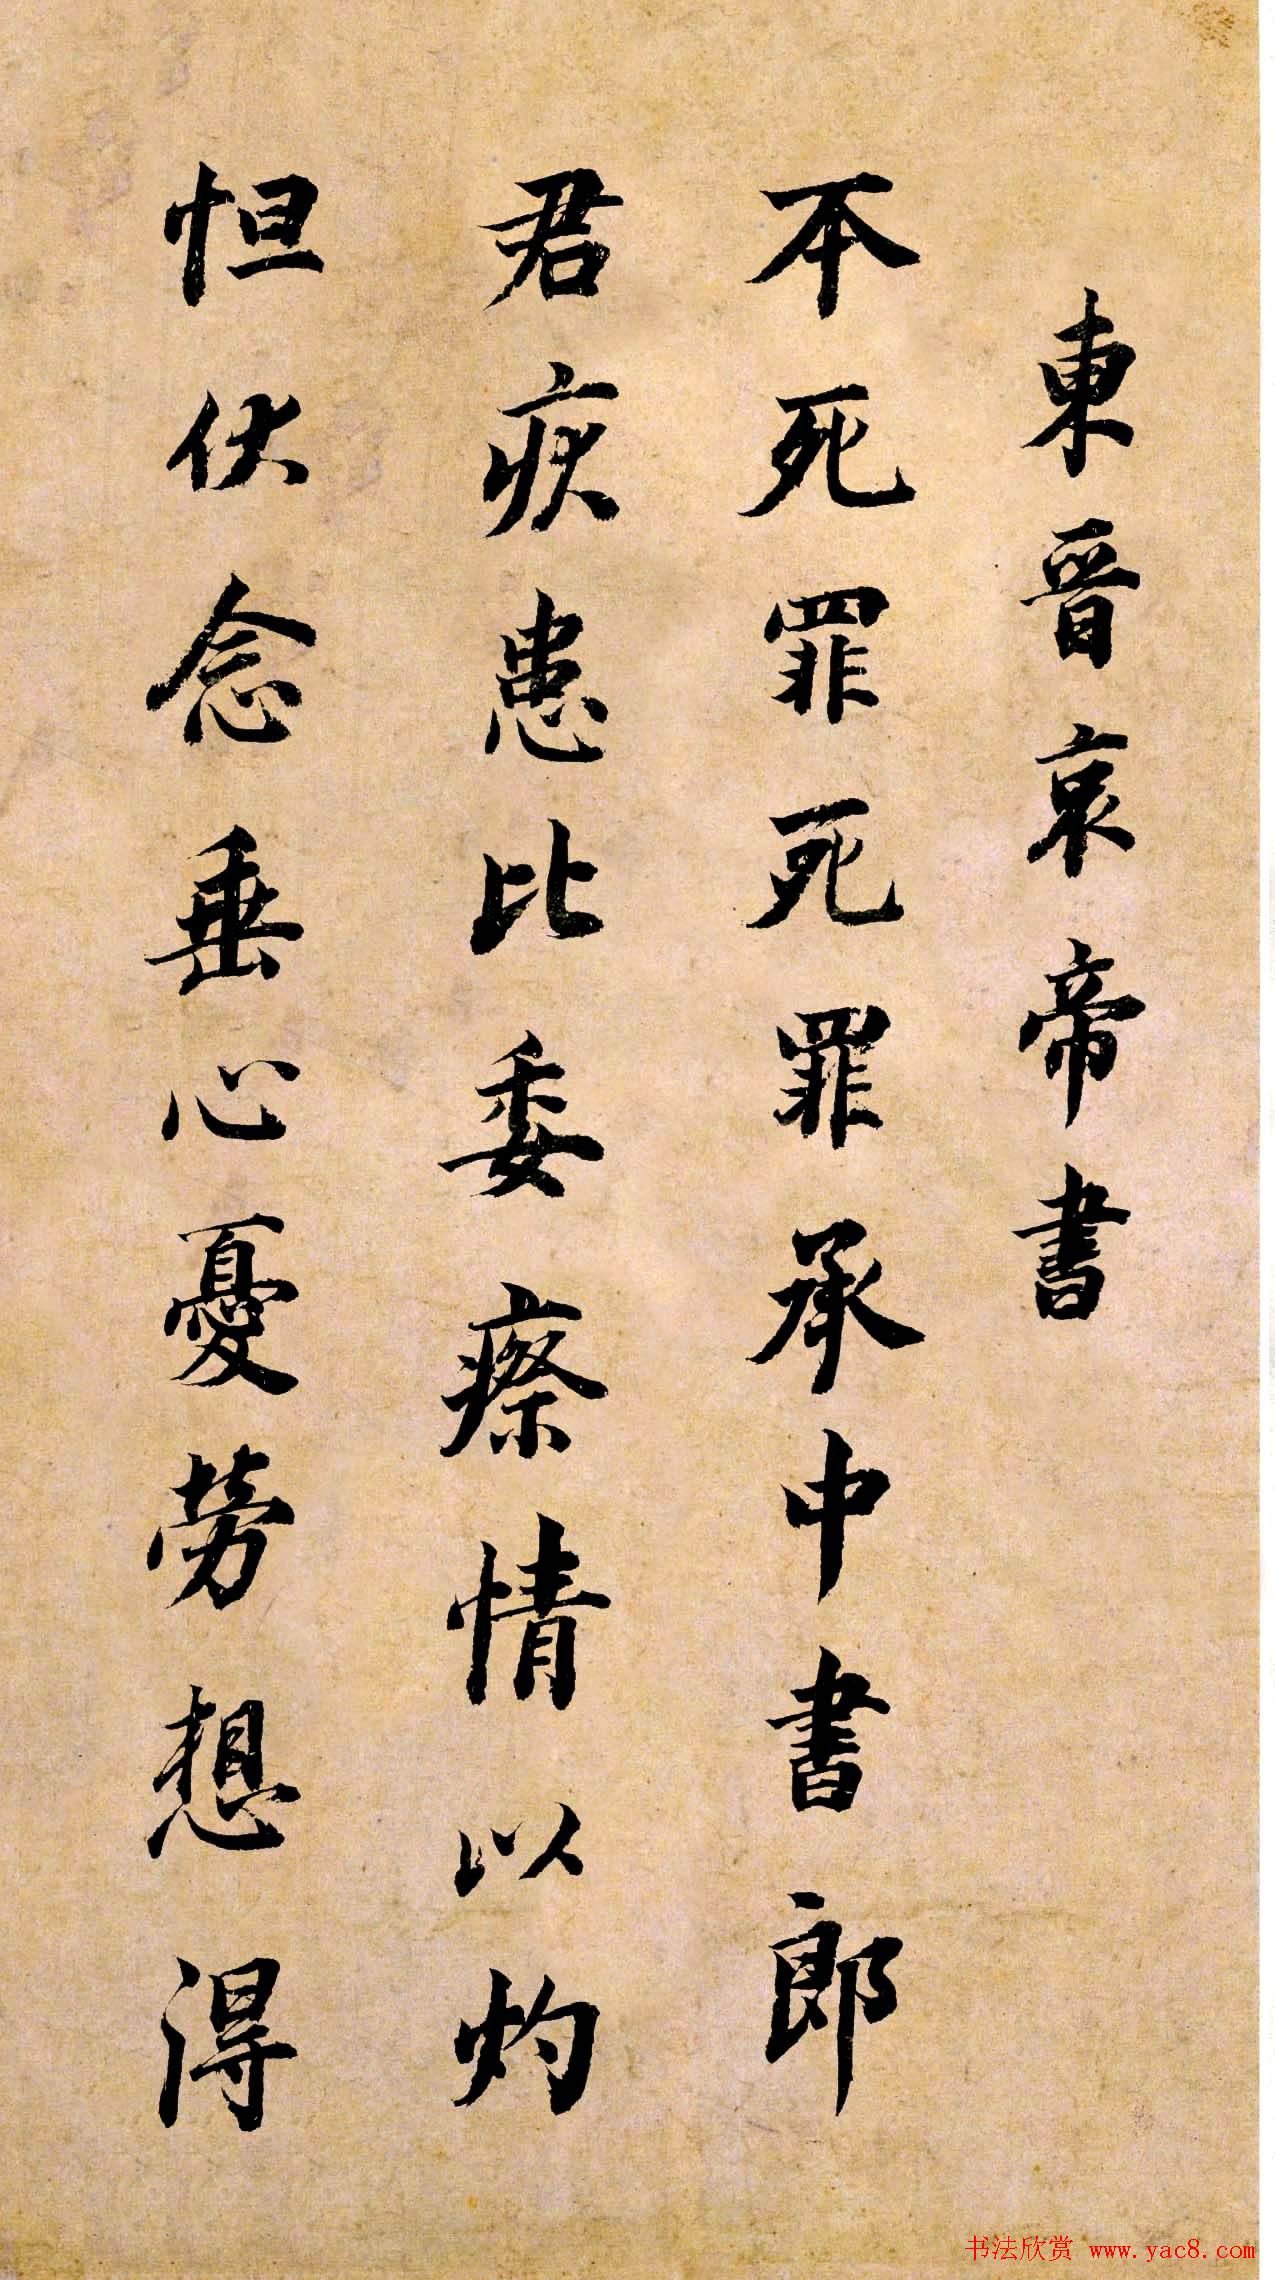 東晉哀帝書
不死罪死罪承中書郎
君疾患比委瘵情以灼
怛伏念垂心憂勞想得
书法欣赏 www.yac8.com